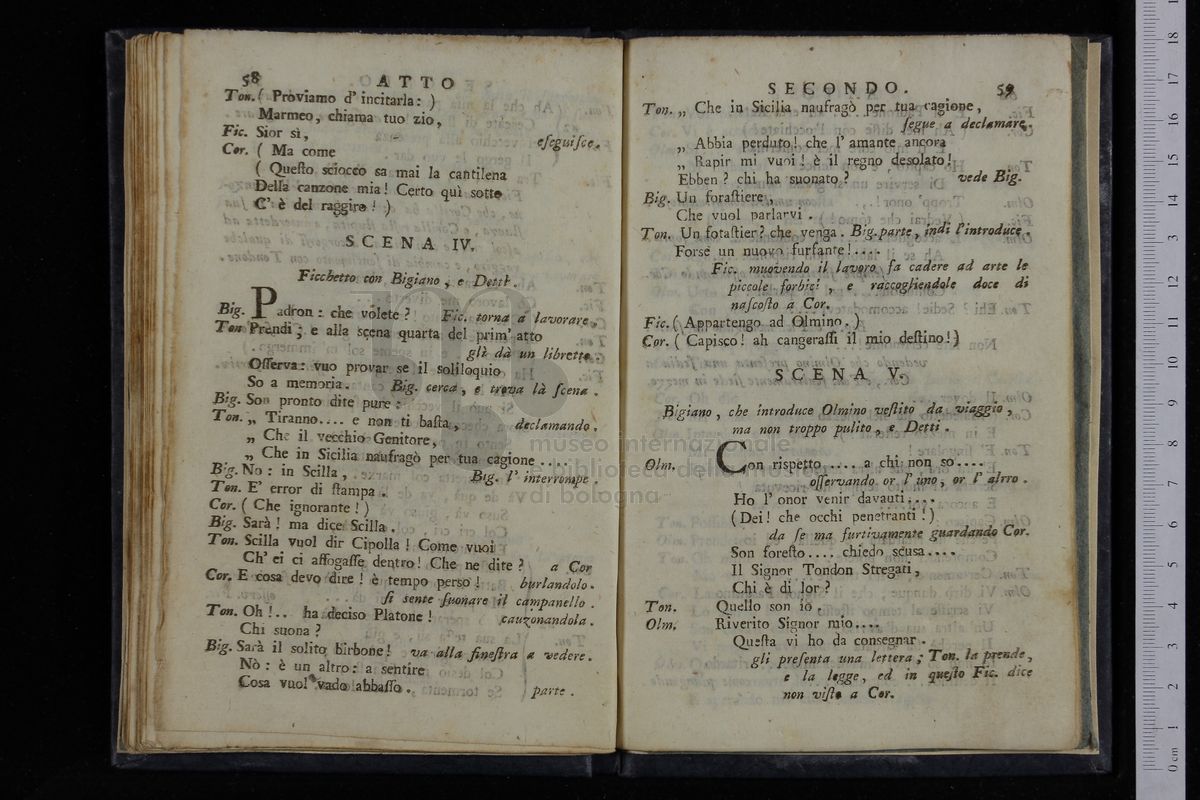 58 ATTO
Ton. ( Proviamo d' incitarla: )
Marmeo, chiama tuo zio,
Fic. Sior sì, eſeguiſce.
Cor. ( Ma come
( Queſto sciocco sa mai la cantilena
Della canzone mia! Certo quì sotto
C' è del raggiro! )
SCENA IV.
Ficchetto con Bigiano, e Detti.
Big. Padron: che volete? Fic. torna a lavorare,
Ton Prendi; e alla scena quarta del prim' atto
gli dà un libretto.
Oſſerva: vuo provar se il soliloquio
So a memoria. Big. cerca, e trova là ſcena.
Big. Son pronto dite pure:
Ton. „ Tiranno.... e non ti baſta, declamando.
„ Che il vecchio Genitore,
„ Che in Sicilia naufragò per tua cagione....
Big. No: in Scilla, Big. l' interrompe.
Ton. E' error di ſtampa.
Cor. ( Che ignorante! )
Big. Sarà! ma dice Scilla.
Ton. Scilla vuol dir Cipolla! Come vuoi
Ch' ei ci affogaſſe dentro! Che ne dite? a Cor
Cor. E cosa devo dire! è tempo perso! burlandolo.
ſi sente ſuonare il campanello.
Ton. Oh!.. ha deciso Platone! cauzonandola.
Chi suona?
Big. Sarà il solito birbone! va alla fineſtra a vedere.
Nò: è un altro: a sentire
Cosa vuol vado abbaſſo. parte.
SECONDO. 59
Ton. „ Che in Sicilia naufragò per tua cagione,
ſegue a declamare.
„ Abbia perduto! che l' amante ancora
„ Rapir mi vuoi! è il regno desolato!
Ebben? chi ha suonato? vede Big.
Big. Un foraſtiere,
Che vuol parlarvi.
Ton. Un foraſtier? che venga. Big. parte, indi l'introduce.
Forse un nuovo furfante!....
Fic. muovendo il lavoro fa cadere ad arte le
piccole forbici, e raccogliendole doce di
naſcoſto a Cor.
Fic. ( Appartengo ad Olmino. )
Cor. ( Capisco! ah cangeraſſi il mio deſtino! )
SCENA V.
Bigiano, che introduce Olmino veſtito da viaggio,
ma non troppo pulito, e Detti.
Olm. Con rispetto.... a chi non so....
oſſervando or l' uno, or l' alrro.
Ho l' onor venir davauti....
( Dei! che occhi penetranti! )
da ſe ma furtivamente guardando Cor.
Son foreſto.... chiedo scusa....
Il Signor Tondon Stregati,
Chi è di lor?
Ton. Quello son io.
Olm. Riverito Signor mio....
Queſta vi ho da consegnar.
gli preſenta una lettera; Ton. la prende,
e la legge, ed in queſto Fic. dice
non viſto a Cor.
museo internazionale
e biblioteca della musica
di bologna
0 cm 1 2 3 4 5 6 7 8 9 10 11 12 13 14 15 16 17 18